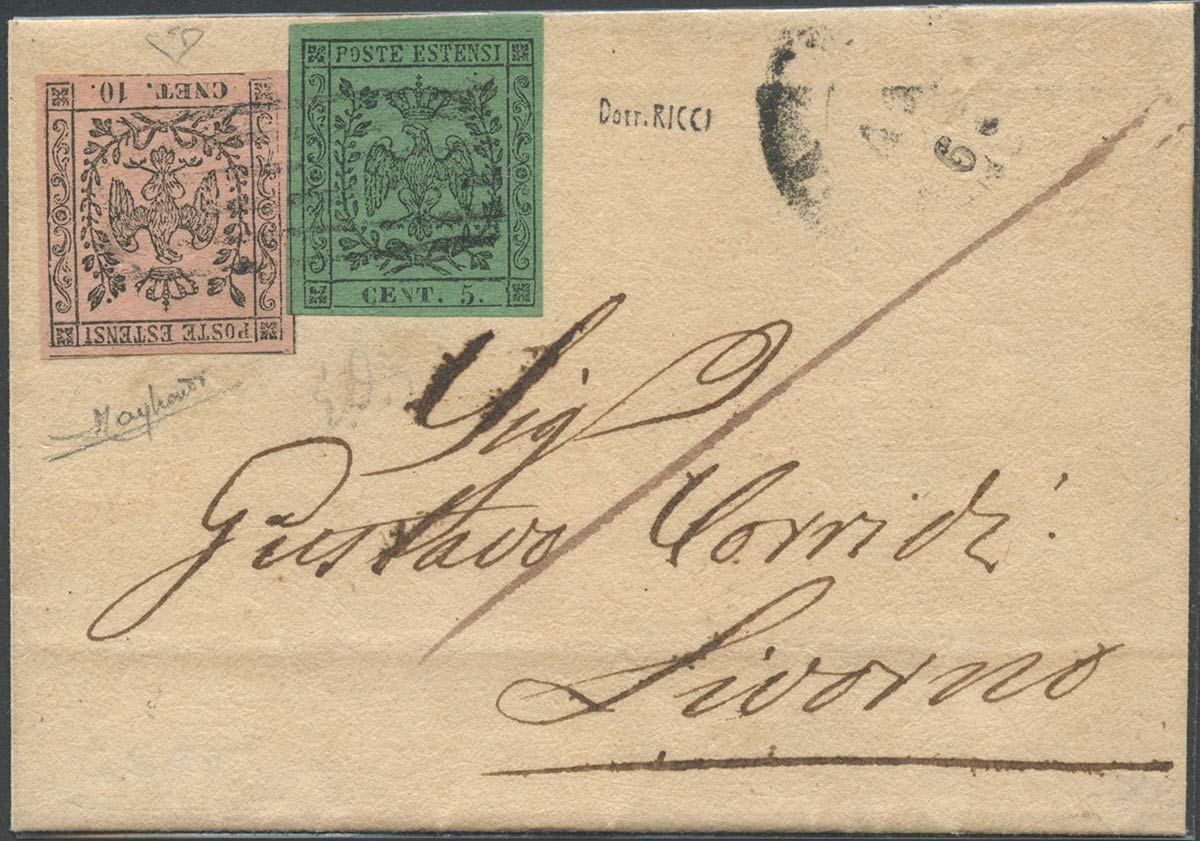 POSTE ESTENSI
CENT. 5.
CNET. 10.
POSTE ESTENSI
Dott. RICCI
Sig
Gustavo Corridi
Livorno